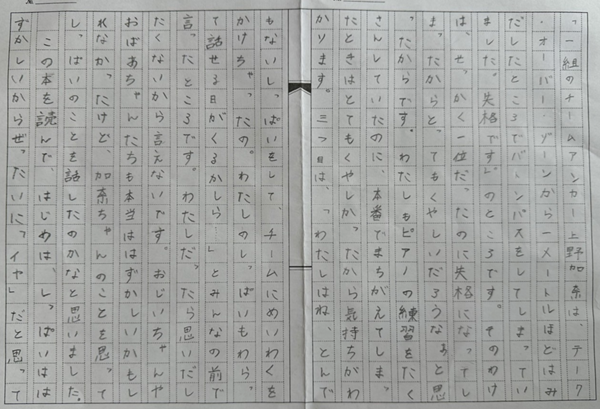 「一組のチームアンカー上野加奈は、テーク
・オーバー・ゾーンから一メートルほどはみ
だしたところでバトンパスをしてしまってい
ました。失格です」のところです。そのわけ
は、せっかく一位だったのに失格になってし
まったからとってもくやしいだろうなぁと思
ったからです。わたしもピアノの練習をたく
さんしていたのに、本番でまちがえてしまっ
たときはとてもくやしかったから気持ちがわ
かります。三つ目は、「わたしはね、とんで
もないしっぱいをして、チームにめいわくを
かけちゃったの。わたしのしっぱいもわらっ
て話せる日がくるかしら……」とみんなの前で
言ったところです。わたしだったら思いだし
たくないから言えないです。おじいちゃんや
おばあちゃんたちも本当ははずかしいかもし
れなかったけど、加奈ちゃんのことを思って
しっぱいのことを話したのかなと思いました。
この本を読んで、はじめは、しっぱいはは
ずかしいからぜったいに「イヤ」だと思って